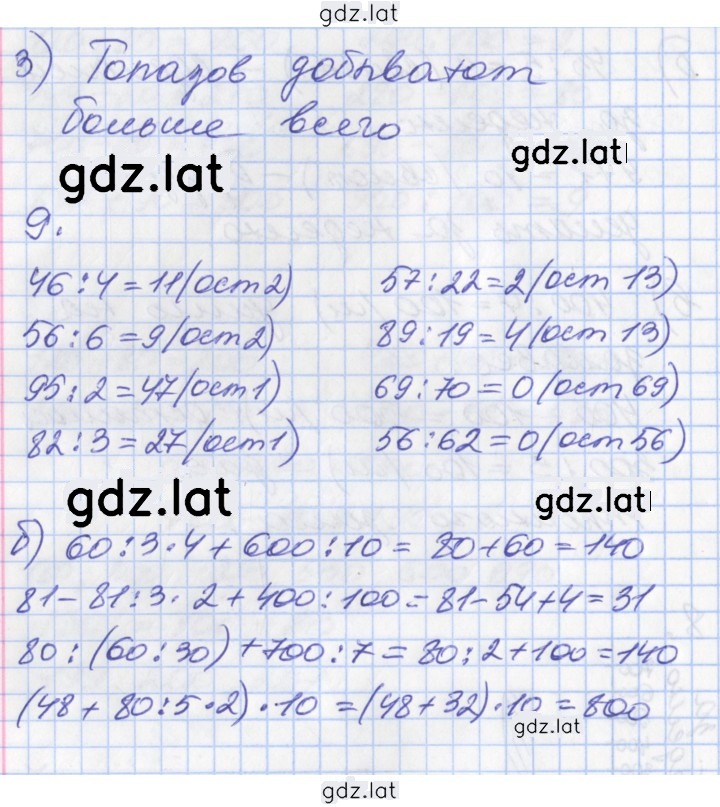 gdz.lat
3) Топазов добывают
больше всего
gdz.lat
gdz.lat
9.
46:4=11(ост2) 57:22=2(ост 13)
56:6=9(ост2) 89:19=4(ост 13)
95:2=47(ост1) 69:70=0(ост 69)
82:3=27(ост1) 56:62=0(ост56)
gdz.lat gdz.lat
б) 60:3·4+600:10= 80+60=140
81-81:3·2+400:100=81-54+4=31
80:(60:30)+700:7=80:2+100=140
(48+80:5·2)·10=(48+32)·10=800
gdz.lat
gdz.lat